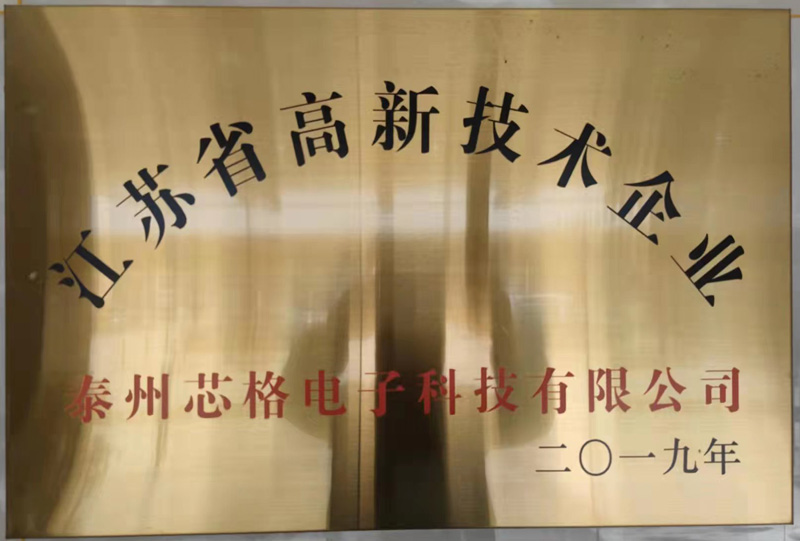 江苏省高新技术企业
泰州芯格电子科技有限公司
二〇一九年